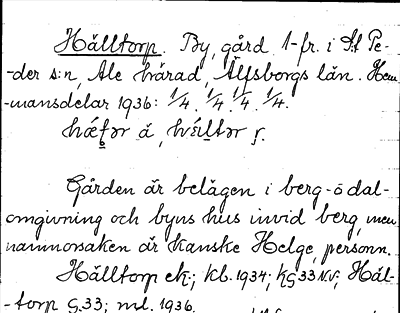 Hälltorp. By, gård 1-fr. i St Pe-
-der s:n, Ale härad, Älfsborgs län. Hem-
-mansdelar 1936: 1/4. 1/4. 1/4. 1/4.
å,
Gården är belägen i berg- o dal-
omgivning och byns hus invid berg, men
namnorsaken är kanske Helge, personn.
Hälltorp ek; kb. 1934; KG33 N.V; Häl-
-torp G.33; ml. 1936.